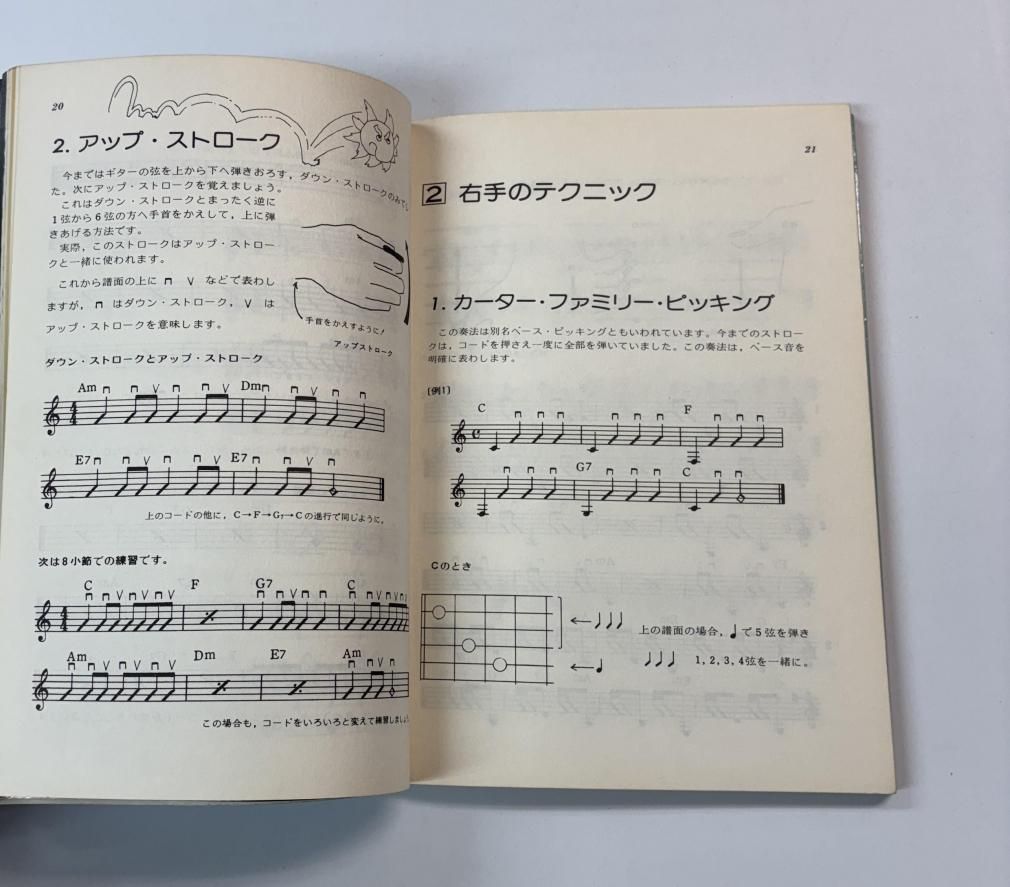 20
2. アップ・ストローク
今まではギターの弦を上から下へ弾きおろす，ダウン・ストロークのみでし
た。次にアップ・ストロークを覚えましょう。
これはダウン・ストロークとまったく逆に
1弦から6弦の方へ手首をかえして，上に弾
きあげる方法です。
実際，このストロークはアップ・ストロー
クと一緒に使われます。
これから譜面の上に ⊓ V などで表わし
ますが，⊓ はダウン・ストローク，V は
アップ・ストロークを意味します。
手首をかえすように！
アップストローク
ダウン・ストロークとアップ・ストローク
Am ⊓ ⊓ V ⊓ ⊓ V Dm ⊓ ⊓ V ⊓ ⊓
4/4
E7 ⊓ ⊓ V ⊓ ⊓ V E7 ⊓ ⊓ V ⊓
上のコードの他に，C→F→G7→Cの進行で同じように，
次は8小節での練習です。
C F G7 C
⊓ ⊓ V ⊓ V ⊓ V ⊓ ⊓ V ⊓ V ⊓ V ⊓ ⊓ V ⊓ V ⊓ V
4/4
Am Dm E7 Am
⊓ ⊓ V ⊓ V ⊓ V ⊓ ⊓ V ⊓
この場合も，コードをいろいろと変えて練習しましょう
21
2 右手のテクニック
1. カーター・ファミリー・ピッキング
この奏法は別名ベース・ピッキングともいわれています。今までのストロー
クは，コードを押さえ一度に全部を弾いていました。この奏法は，ベース音を
明確に表わします。
〔例1〕
C ⊓ ⊓ ⊓ ⊓ ⊓ ⊓ F ⊓ ⊓ ⊓
C
⊓ ⊓ ⊓ G7 ⊓ ⊓ ⊓ C ⊓ ⊓
Cのとき
←♩♩♩
上の譜面の場合，♩で5弦を弾き
←♩
♩♩♩ 1,2,3,4弦を一緒に。